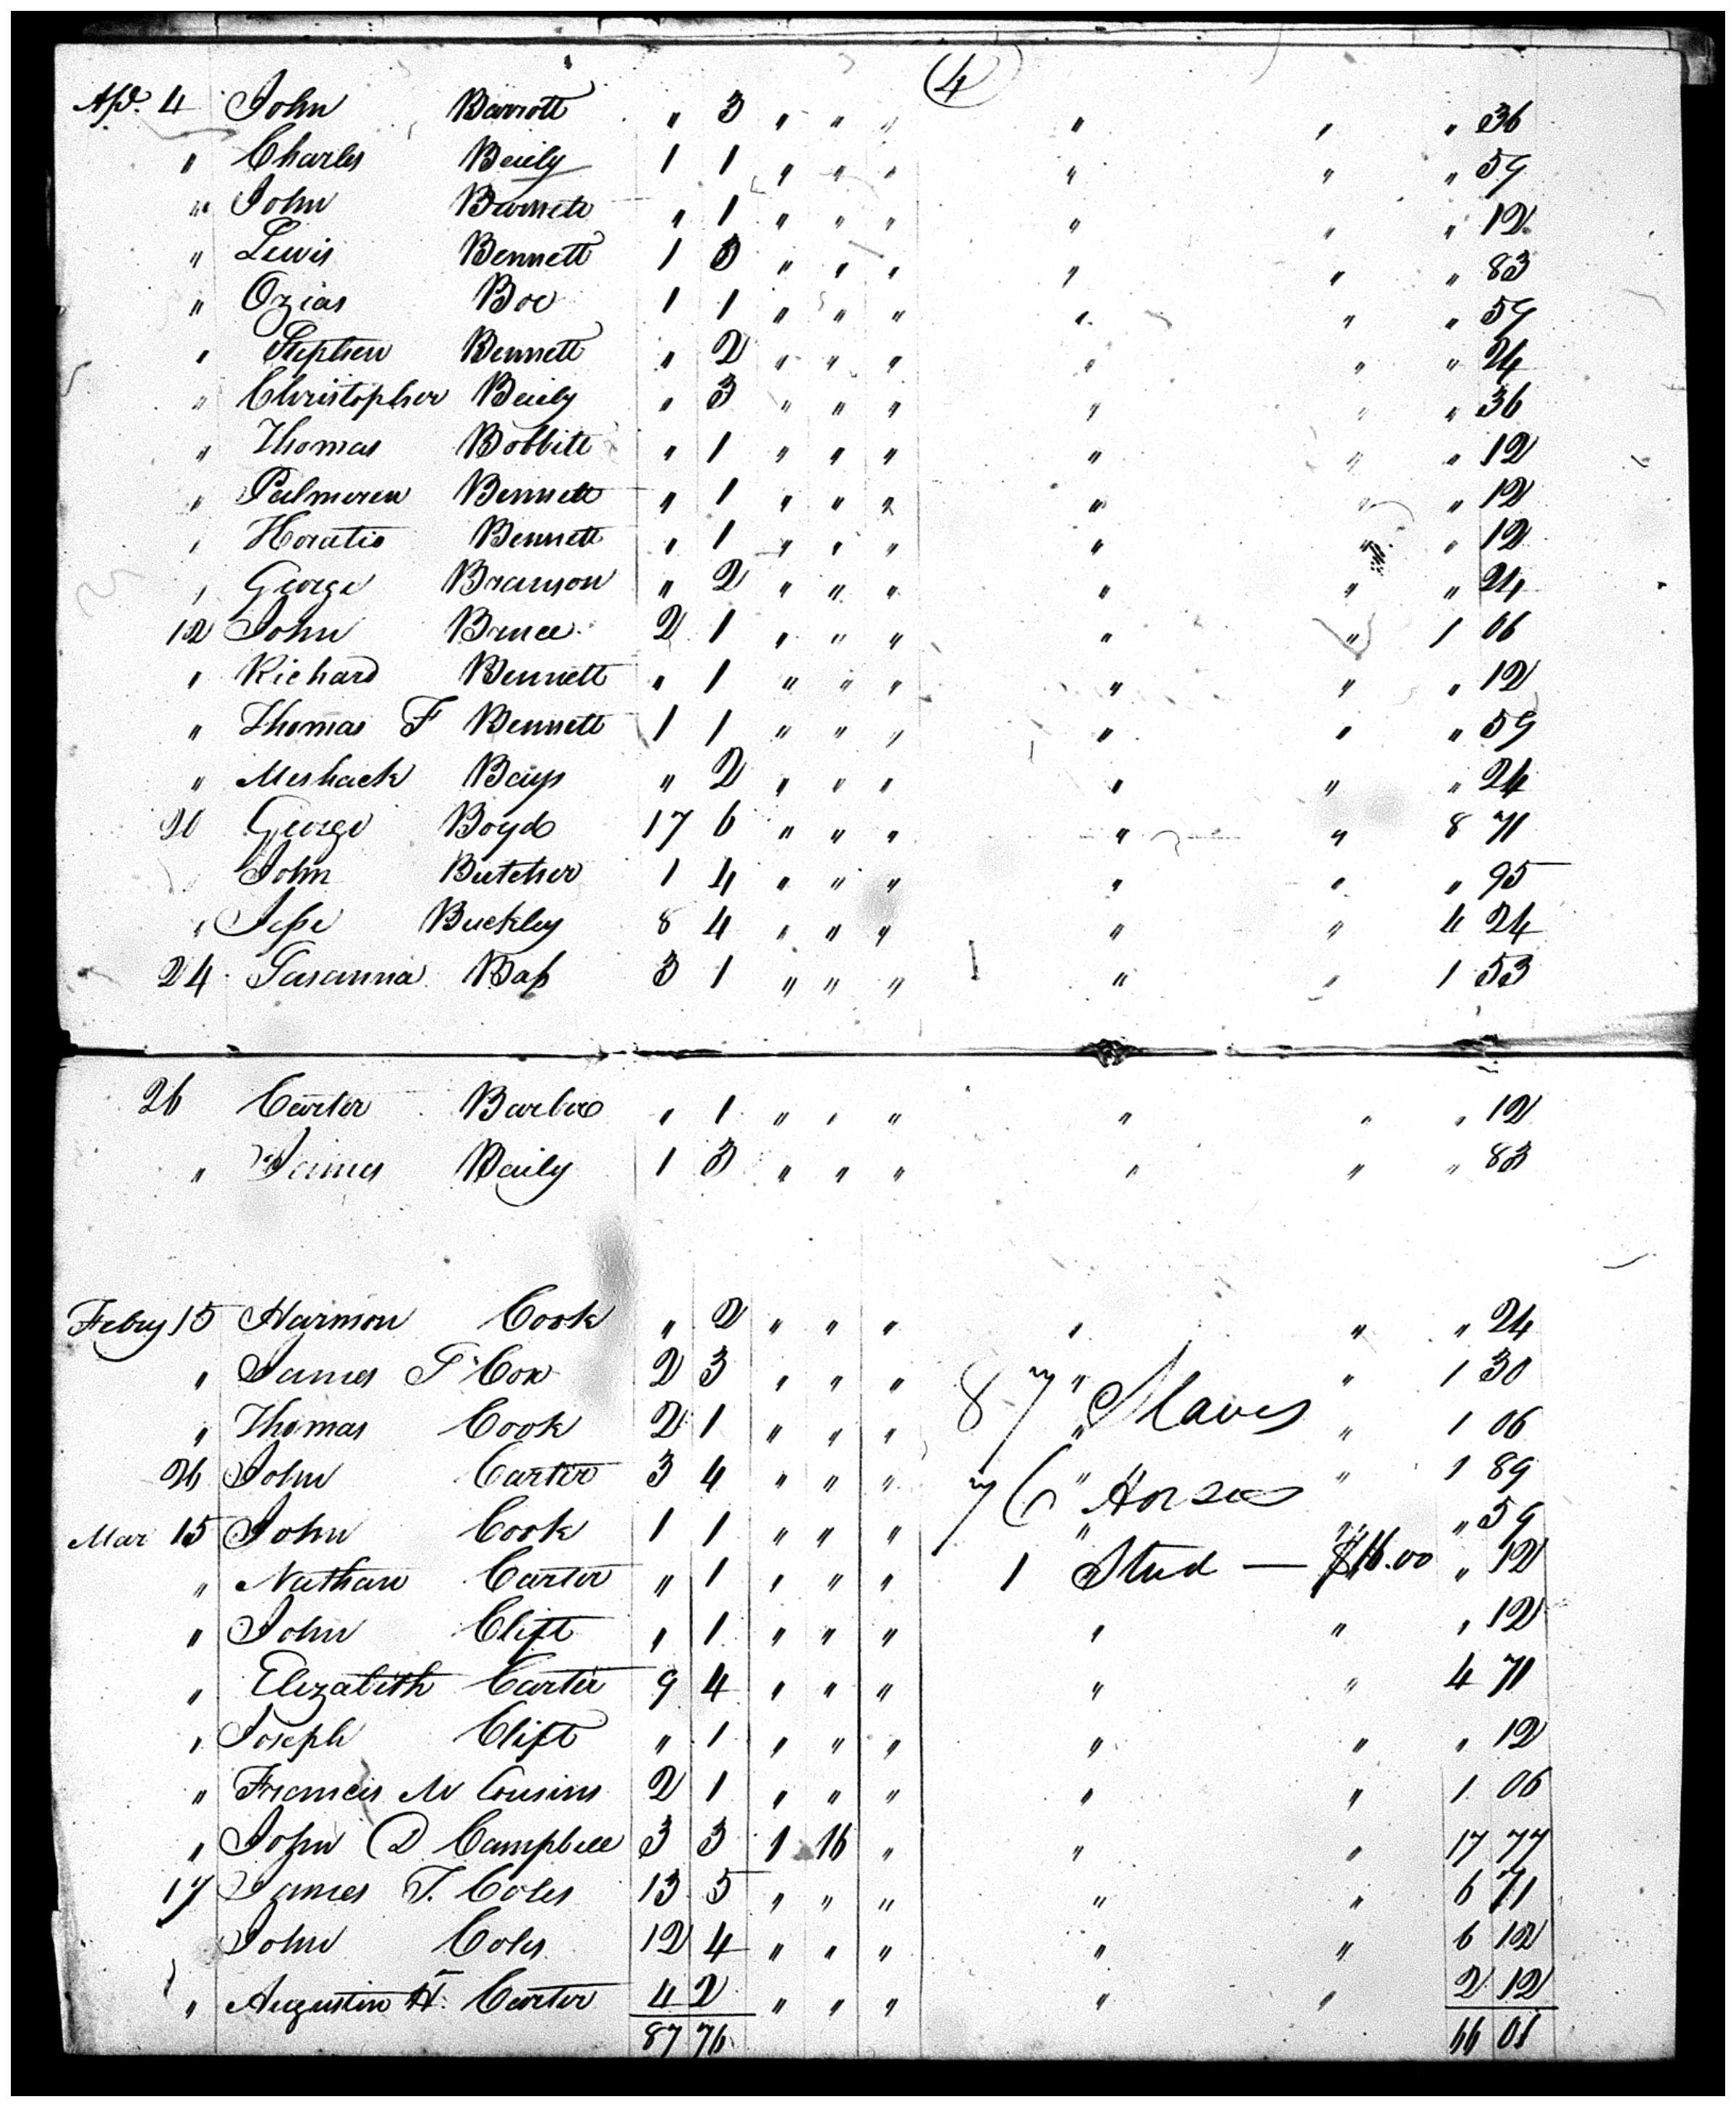 (4)
Apl. 4 John Barrott " 3 " " " " " " 36
" Charles Baily 1 1 " " " " " " 59
" John Barnett " 1 " " " " " " 12
" Lewis Bennett 1 3 " " " " " " 83
" Ozias Boe 1 1 " " " " " " 59
" Stephen Bennett " 2 " " " " " " 24
" Christopher Baily " 3 " " " " " " 36
" Thomas Bobbitt " 1 " " " " " " 12
" Bennett " 1 " " " " " " 12
" Horatio Bennett " 1 " " " " " " 12
" George Branson " 2 " " " " " " 24
12 John Bruce 2 1 " " " " " 1 06
" Richard Bennett " 1 " " " " " " 12
" Thomas F Bennett 1 1 " " " " " " 59
" Meshack Bays " 2 " " " " " " 24
20 George Boyd 17 6 " " " " " 8 71
John Butcher 1 4 " " " " " " 95
" Jesse Buckley 8 4 " " " " " 4 24
24 Bass 3 1 " " " " " 1 53
26 Carter Barber " 1 " " " " " " 12
" James Baily 1 3 " " " " " " 83
Feby 15 Harmon Cook " 2 " " " " " " 24
" James T Cox 2 3 " " " " " 1 30
87 Slaves
" Thomas Cook 2 1 " " " " " 1 06
26 John Carter 3 4 " " " " " 1 89
76 Horses
Mar 15 John Cook 1 1 " " " " " " 59
" Nathan Carter " 1 " " " 1 Stud — $16.00 " 12
" John Clift " 1 " " " " " " 12
" Elizabeth Carter 9 4 " " " " " 4 71
" Joseph Clift " 1 " " " " " " 12
" Francis M Cousins 2 1 " " " " " 1 06
" John D Campbell 3 3 1 16 " " " 17 77
17 James T. Coles 13 5 " " " " " 6 71
John Coles 12 4 " " " " " 6 12
" Augustin H. Carter 4 2 " " " " " 2 12
87 76 66 01